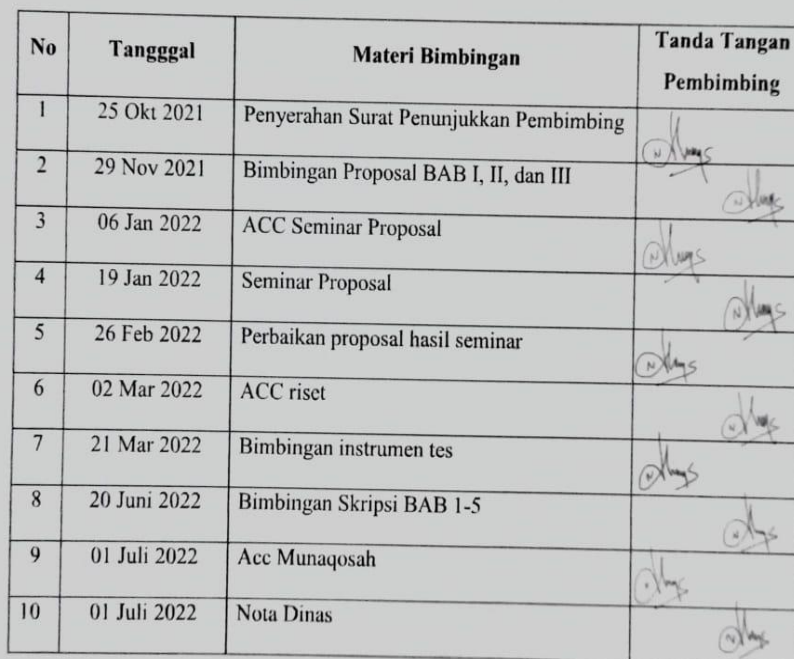 No Tangggal Materi Bimbingan Tanda Tangan
Pembimbing
1 25 Okt 2021 Penyerahan Surat Penunjukkan Pembimbing
2 29 Nov 2021 Bimbingan Proposal BAB I, II, dan III
3 06 Jan 2022 ACC Seminar Proposal
4 19 Jan 2022 Seminar Proposal
5 26 Feb 2022 Perbaikan proposal hasil seminar
6 02 Mar 2022 ACC riset
7 21 Mar 2022 Bimbingan instrumen tes
8 20 Juni 2022 Bimbingan Skripsi BAB 1-5
9 01 Juli 2022 Acc Munaqosah
10 01 Juli 2022 Nota Dinas